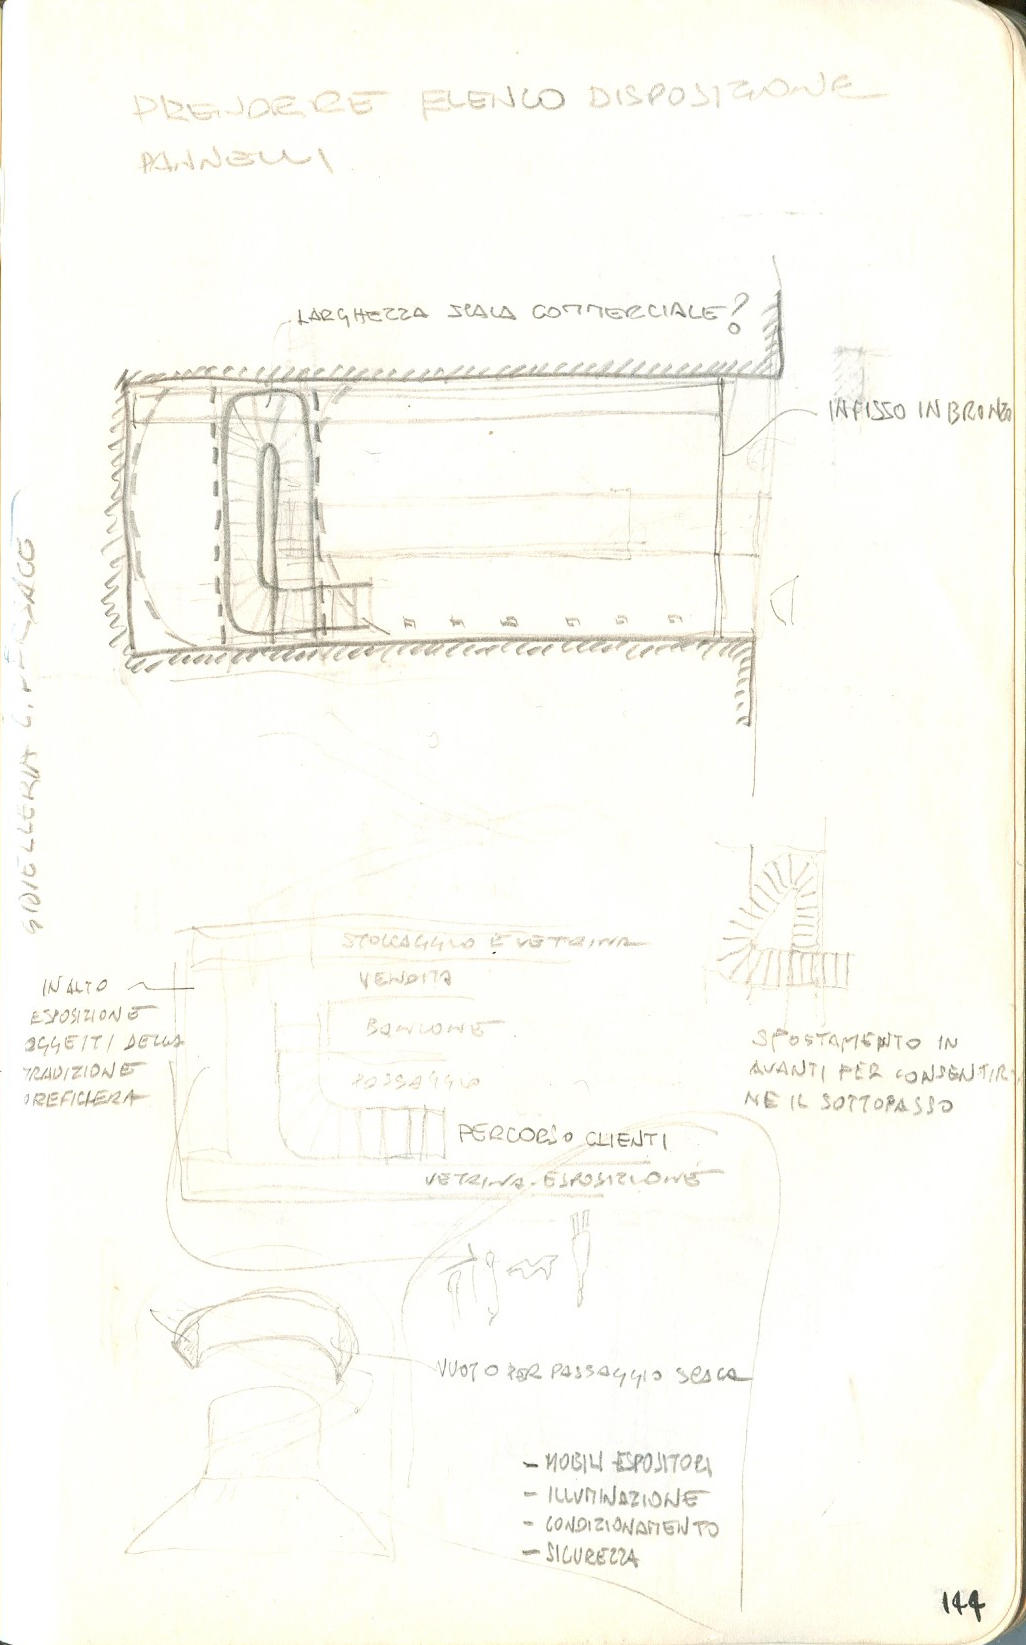 PRENDERE ELENCO DISPOSIZIONE
PANNELLI
LARGHEZZA SCALA COMMERCIALE?
INFISSO IN BRONZO
GIOIELLERIA G.
STOCCAGGIO E VETRINA
VENDITA
BANCONE
PASSAGGIO
PERCORSO CLIENTI
VETRINA-ESPOSIZIONE
IN ALTO
ESPOSIZIONE
OGGETTI DELLA
TRADIZIONE
OREFICIERA
SPOSTAMENTO IN
AVANTI PER CONSENTIR
NE IL SOTTOPASSO
VUOTO PER PASSAGGIO SCALA
- MOBILI ESPOSITORI
- ILLUMINAZIONE
- CONDIZIONAMENTO
- SICUREZZA
144